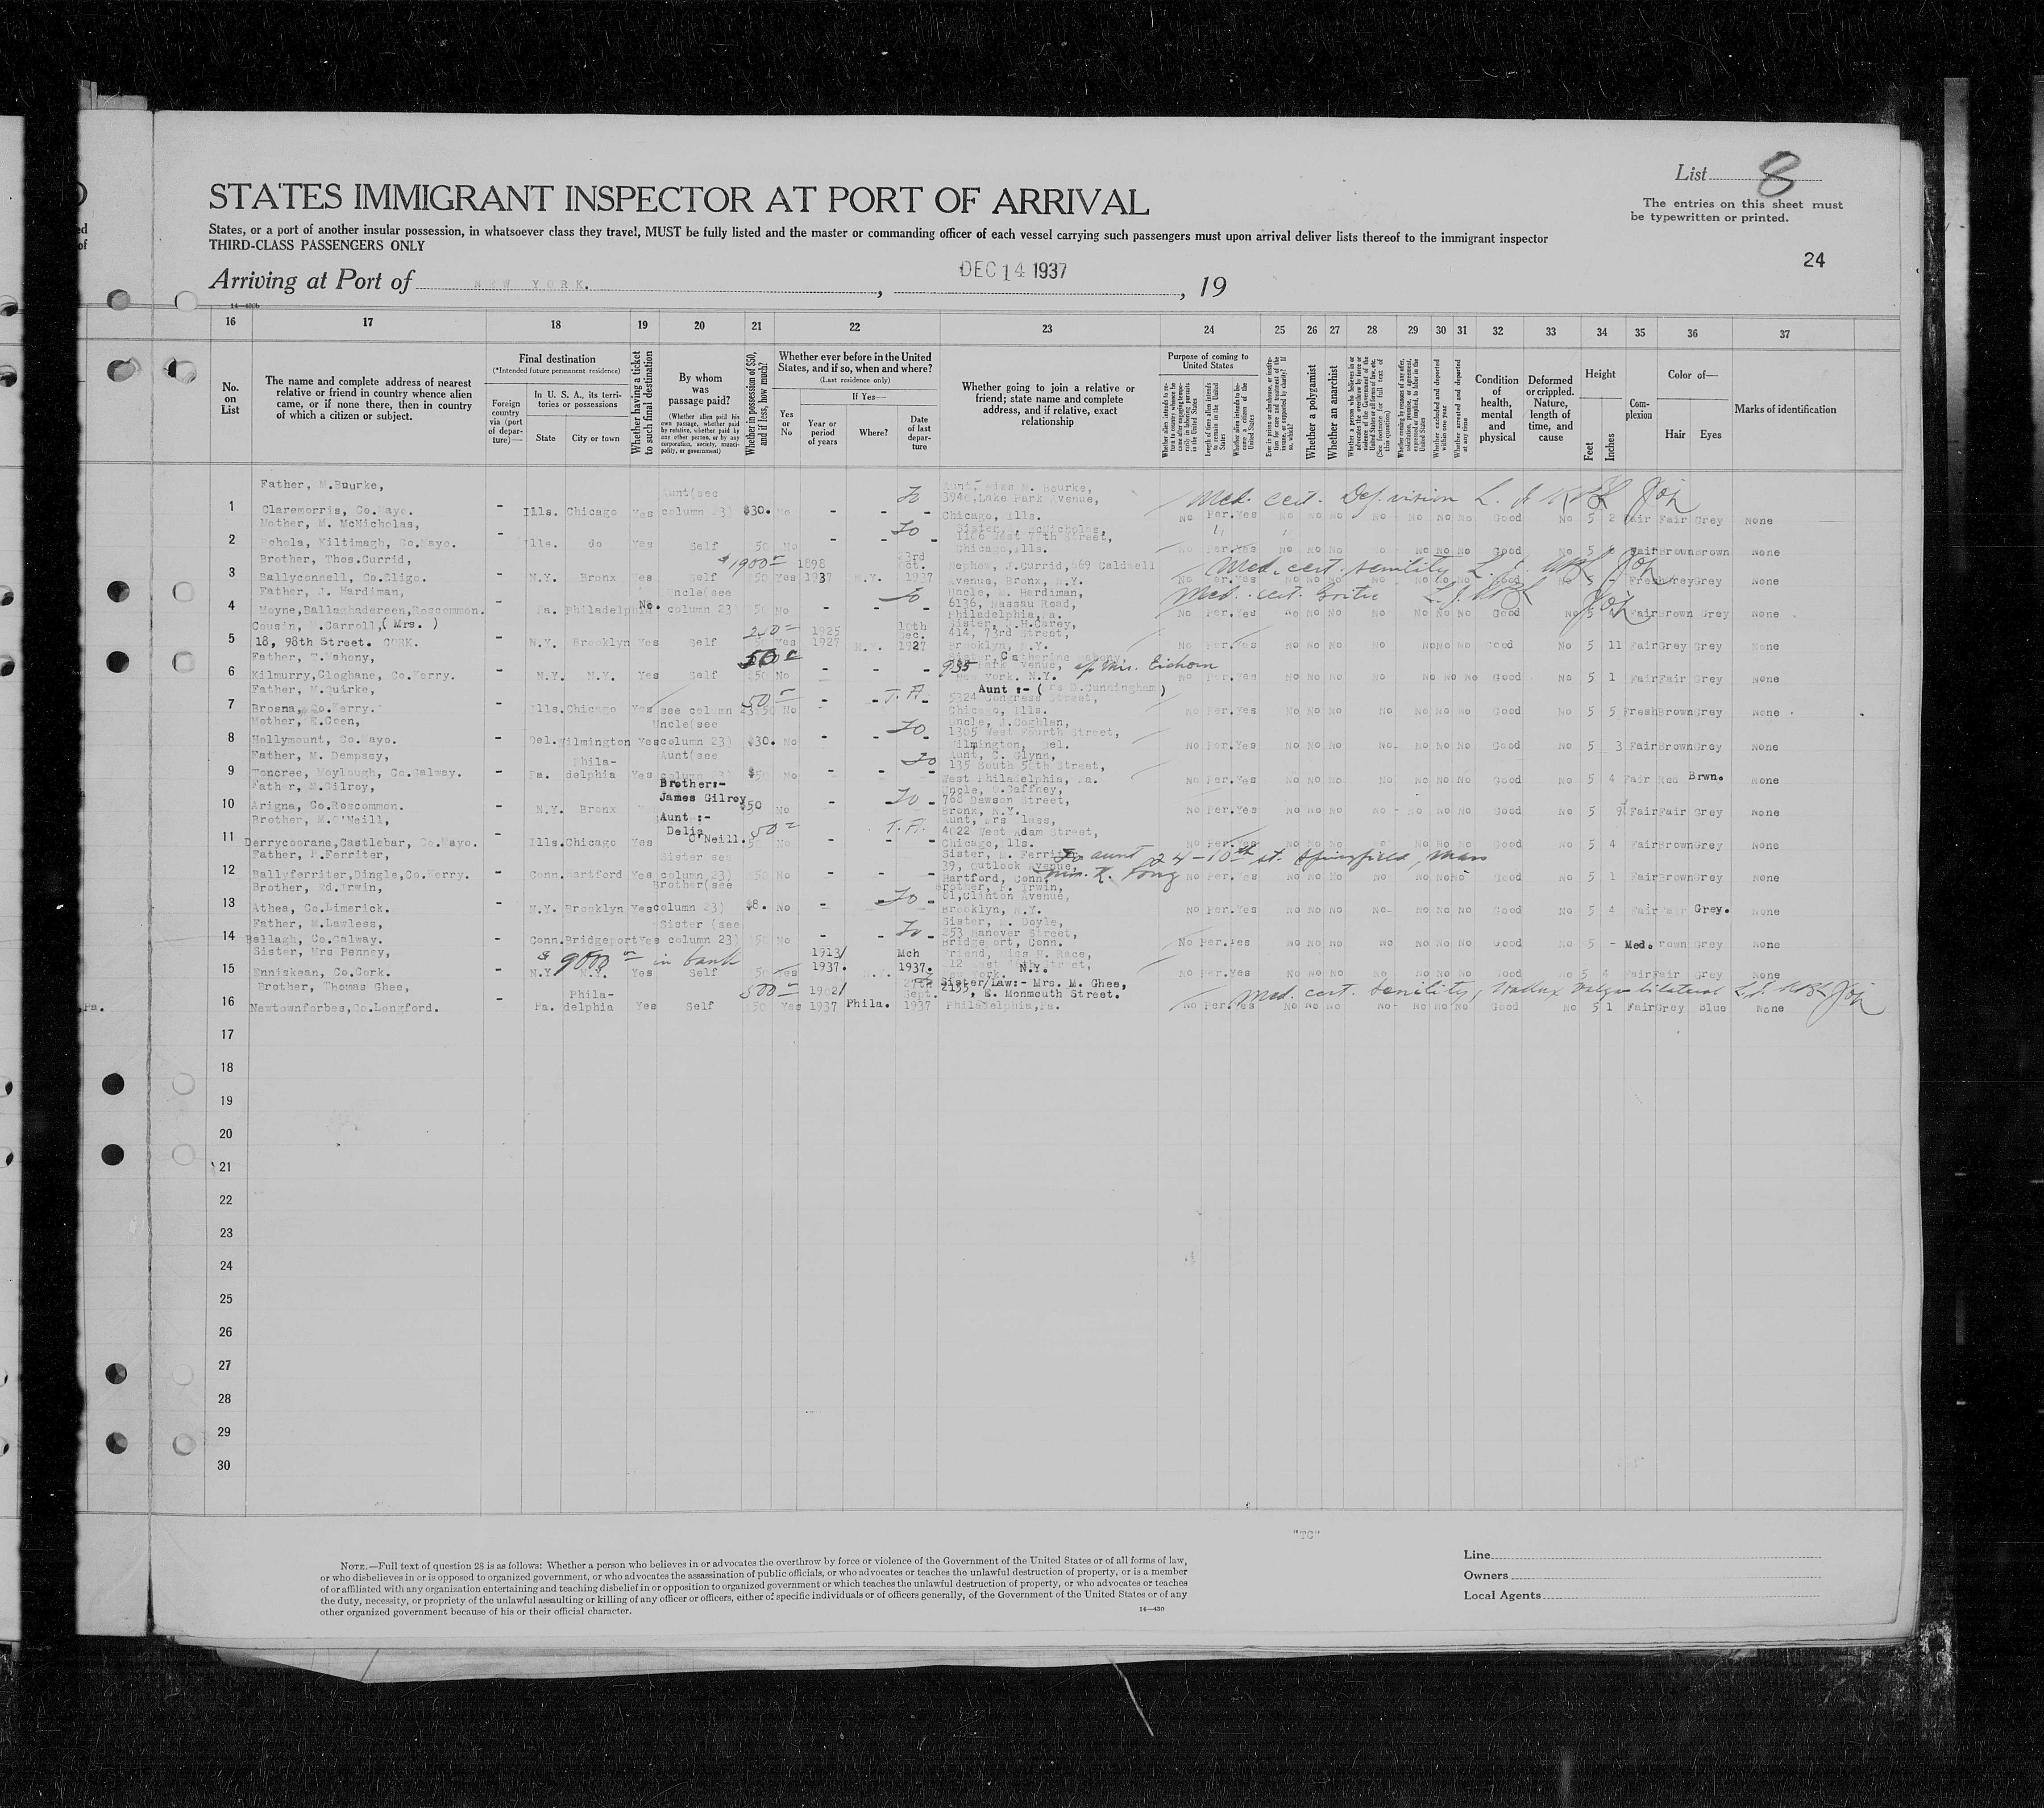 List 8
The entries on this sheet must
be typewritten or printed.
STATES IMMIGRANT INSPECTOR AT PORT OF ARRIVAL
States, or a port of another insular possession, in whatsoever class they travel, MUST be fully listed and the master or commanding officer of each vessel carrying such passengers must upon arrival deliver lists thereof to the immigrant inspector
THIRD-CLASS PASSENGERS ONLY
24
Arriving at Port of NEW YORK. , DEC 14 1937 , 19
14—430b
16 17 18 19 20 21 22 23 24 25 26 27 28 29 30 31 32 33 34 35 36 37
No. on List
The name and complete address of nearest relative or friend in country whence alien came, or if none there, then in country of which a citizen or subject.
Final destination
(*Intended future permanent residence)
Foreign country via (port of departure)—
In U. S. A., its territories or possessions
State
City or town
Whether having a ticket to such final destination
By whom was passage paid?
(Whether alien paid his own passage, whether paid by relative, whether paid by any other person, or by any corporation, society, municipality, or government)
Whether in possession of $50, and if less, how much?
Whether ever before in the United States, and if so, when and where?
(Last residence only)
Yes or No
If Yes—
Year or period of years
Where?
Date of last departure
Whether going to join a relative or friend; state name and complete address, and if relative, exact relationship
Purpose of coming to United States
Whether alien intends to return to country whence he came after engaging temporarily in laboring pursuits in the United States
Length of time alien intends to remain in the United States
Whether alien intends to become a citizen of the United States
Whether a polygamist
Whether an anarchist
Whether excluded and deported within one year
Whether arrested and deported at any time
Condition of health, mental and physical
Deformed or crippled. Nature, length of time, and cause
Height
Feet
Inches
Complexion
Color of—
Hair
Eyes
Marks of identification
Father, M.Bourke,
1 Claremorris, Co.Mayo. - Ills. Chicago Yes Aunt(see column 23) $30. No - - - Aunt, Miss M. Bourke, 3946,Lake Park Avenue, Chicago, Ills. No Per. Yes No No No No No No No Good No 5 2 Fair Fair Grey None
Med. cert. Def. vision
Mother, M. McNicholas,
2 Kiltimagh, Co.Mayo. - Ills. do Yes Self 50 No - - - Sister, McNicholas, West 77th Street, Chicago,Ills. No Per.Yes No No No No No No No Good No 5 Fair Brown Brown None
Brother, Thos.Currid,
3 Ballyconnell, Co.Sligo. - N.Y. Bronx Yes Self $1900 50 Yes 1898 1937 N.Y. 23rd Oct. 1937 Nephew, J.Currid,669 Caldwell Avenue, Bronx, N.Y. No Per.Yes No No No No No No No Good No 5 Fresh Grey Grey None
Med. cert. senility
Father, J. Hardiman,
4 Moyne,Ballaghadereen,Roscommon. - Pa. Philadelphia No. Uncle(see column 23 50 No - - - Uncle, M. Hardiman, 6136, Nassau Road, Philadelphia,Pa. No Per.Yes No No No No No No No Good No 5 Fair Brown Grey None
Med. cert. Goitre
Cousin, M.Carroll,( Mrs. )
5 18, 98th Street. CORK. - N.Y. Brooklyn Yes Self Yes 1925 1927 N.Y. 10th Dec. 1927 Sister, H.Carey, 414, 73rd Street, Brooklyn, N.Y. No Per.Yes No No No No No No No Good No 5 11 Fair Grey Grey None
Father, T.Mahony,
6 Kilmurry,Cloghane, Co.Kerry. - N.Y. N.Y. Yes Self 50 No - - - Sister,Catherine Mahony, 935 Park Avenue, c/o Mrs. Eichorn New York. N.Y. No Per.Yes No No No No No No No Good No 5 1 Fair Fair Grey None
Father, M.Quirke,
7 Brosna, Co.Kerry. - Ills.Chicago Yes see column 23 50 No - - T.A. Aunt :- (Mrs D.Cunningham) 5324 Congress Street, Chicago, Ills. No Per.Yes No No No No No No No Good No 5 5 Fresh Brown Grey None
Mother, E.Coen,
8 Hollymount, Co.Mayo. - Del. Wilmington Yes Uncle(see column 23) $30. No - - - Uncle, J.Coghlan, 1305 West Fourth Street, Wilmington, Del. No Per.Yes No No No No No No No Good No 5 3 Fair Brown Grey None
Father, M. Dempsey,
9 Moylough, Co.Galway. - Pa. Philadelphia Yes Aunt(see column 23) $50 No - - Aunt, C. Glynn, 135 South 56th Street, West Philadelphia, Pa. No Per.Yes No No No No No No No Good No 5 4 Fair Red Brwn. None
Father, M.Gilroy,
10 Arigna, Co.Roscommon. - N.Y. Bronx Brother:- James Gilroy $50 No - - - Uncle, D.Gaffney, 768 Dawson Street, Bronx, N.Y. No Per.Yes No No No No No No No Good No 5 9 Fair Fair Grey None
Brother, M.O'Neill,
11 Derrycoorane,Castlebar, Co.Mayo. - Ills.Chicago Yes Aunt :- Delia O'Neill. 50 No - - T.A. Aunt, Mrs 4022 West Adam Street, Chicago,Ills. No Per.Yes No No No No No No No Good No 5 4 Fair Brown Grey None
Father, P.Ferriter,
12 Ballyferriter,Dingle,Co.Kerry. - Conn.Hartford Yes Sister see column,23) 50 No - - - Sister, M. Ferriter, 39, Outlook Avenue, Hartford, Conn. No Per.Yes No No No No No No No Good No 5 1 Fair Brown Grey None
To aunt 24 - 10th st. Springfield, Mass
Mrs. K. Long
Brother, Ed.Irwin,
13 Athea, Co.Limerick. - N.Y. Brooklyn Yes Brother(see column 23) $8. No - - Brother, P. Irwin, 61,Clinton Avenue, Brooklyn, N.Y. No Per.Yes No No No No No No No Good No 5 4 Fair Fair Grey. None
Father, M.Lawless,
14 Bellagh, Co.Galway. - Conn.Bridgeport Yes Sister (see column 23) 50 No - - Sister, M. Doyle, 253 Hanover Street, Bridgeport, Conn. No Per.Yes No No No No No No No Good No 5 - Med. Brown Grey None
Sister, Mrs Penney,
15 Enniskean, Co.Cork. - N.Y. N.Y. Yes Self 50 Yes 1913/ 1937. N.Y. Mch 1937. Friend, Miss H. Race, 12 West Street, New York. N.Y. No Per.Yes No No No No No No No Good No 5 4 Fair Fair Grey None
$ 9000 in bank
Brother, Thomas Ghee,
16 Newtownforbes,Co.Longford. - Pa. Philadelphia Yes Self 500 50 Yes 1902/ 1937 Phila. 7th Sept. 1937 Sister/Law:- Mrs. M. Ghee, 2135, E. Monmouth Street. Philadelphia,Pa. No Per.Yes No No No No No No No Good No 5 1 Fair Grey Blue None
Med. cert. senility, Hallux valgus bilateral
17
18
19
20
21
22
23
24
25
26
27
28
29
30
"TC"
NOTE.—Full text of question 28 is as follows: Whether a person who believes in or advocates the overthrow by force or violence of the Government of the United States or of all forms of law,
or who disbelieves in or is opposed to organized government, or who advocates the assassination of public officials, or who advocates or teaches the unlawful destruction of property, or is a member
of or affiliated with any organization entertaining and teaching disbelief in or opposition to organized government or which teaches the unlawful destruction of property, or who advocates or teaches
the duty, necessity, or propriety of the unlawful assaulting or killing of any officer or officers, either of specific individuals or of officers generally, of the Government of the United States or of any
other organized government because of his or their official character.
14—430
Line
Owners
Local Agents